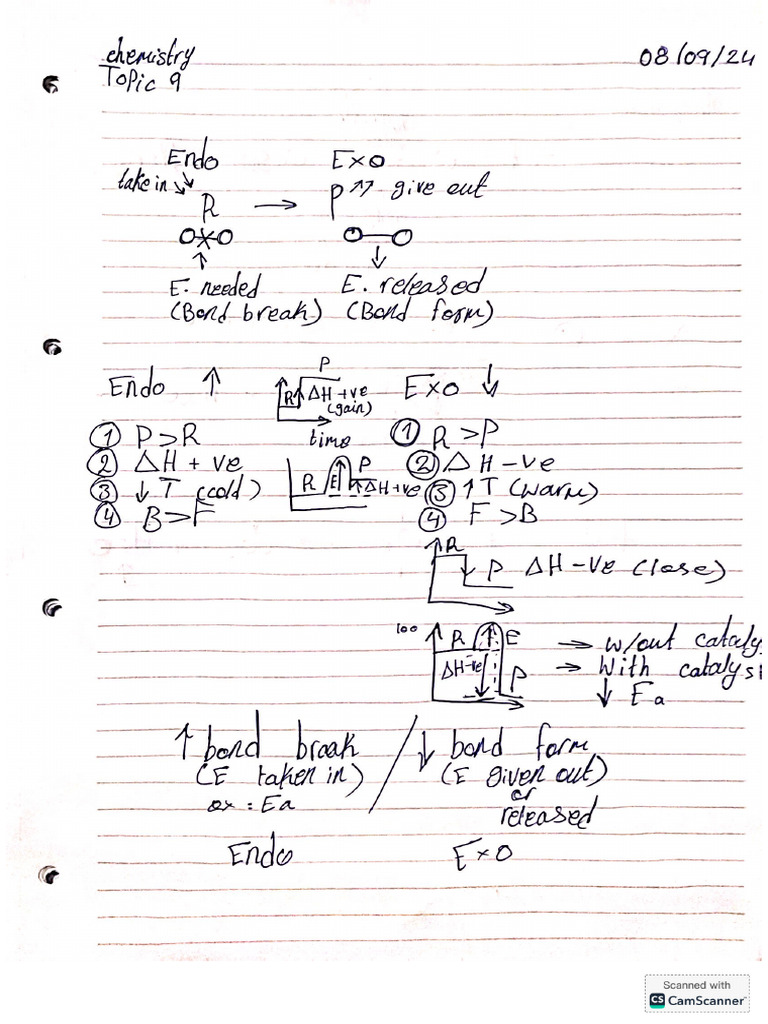 chemistry 08/09/24
Topic 9
Endo Exo
take in ↘↘ P ↗↗ give out
R →
E. needed E. released
(Bond break) (Bond form)
Endo ↑ Exo ↓
P
R ΔH +ve
(gain)
time
① P>R ① R>P
② ΔH +ve ② ΔH -ve
③ ↓ T (cold) ③ ↑ T (warm)
④ B>F ④ F>B
R E P ΔH +ve
R P ΔH -ve (lose)
100 R E → w/out cataly
ΔH -ve P → With catalys
↓ Ea
↑ bond break / ↓ bond form
(E taken in) (E given out)
ex = Ea or
released
Endo Exo
Scanned with
CS CamScanner